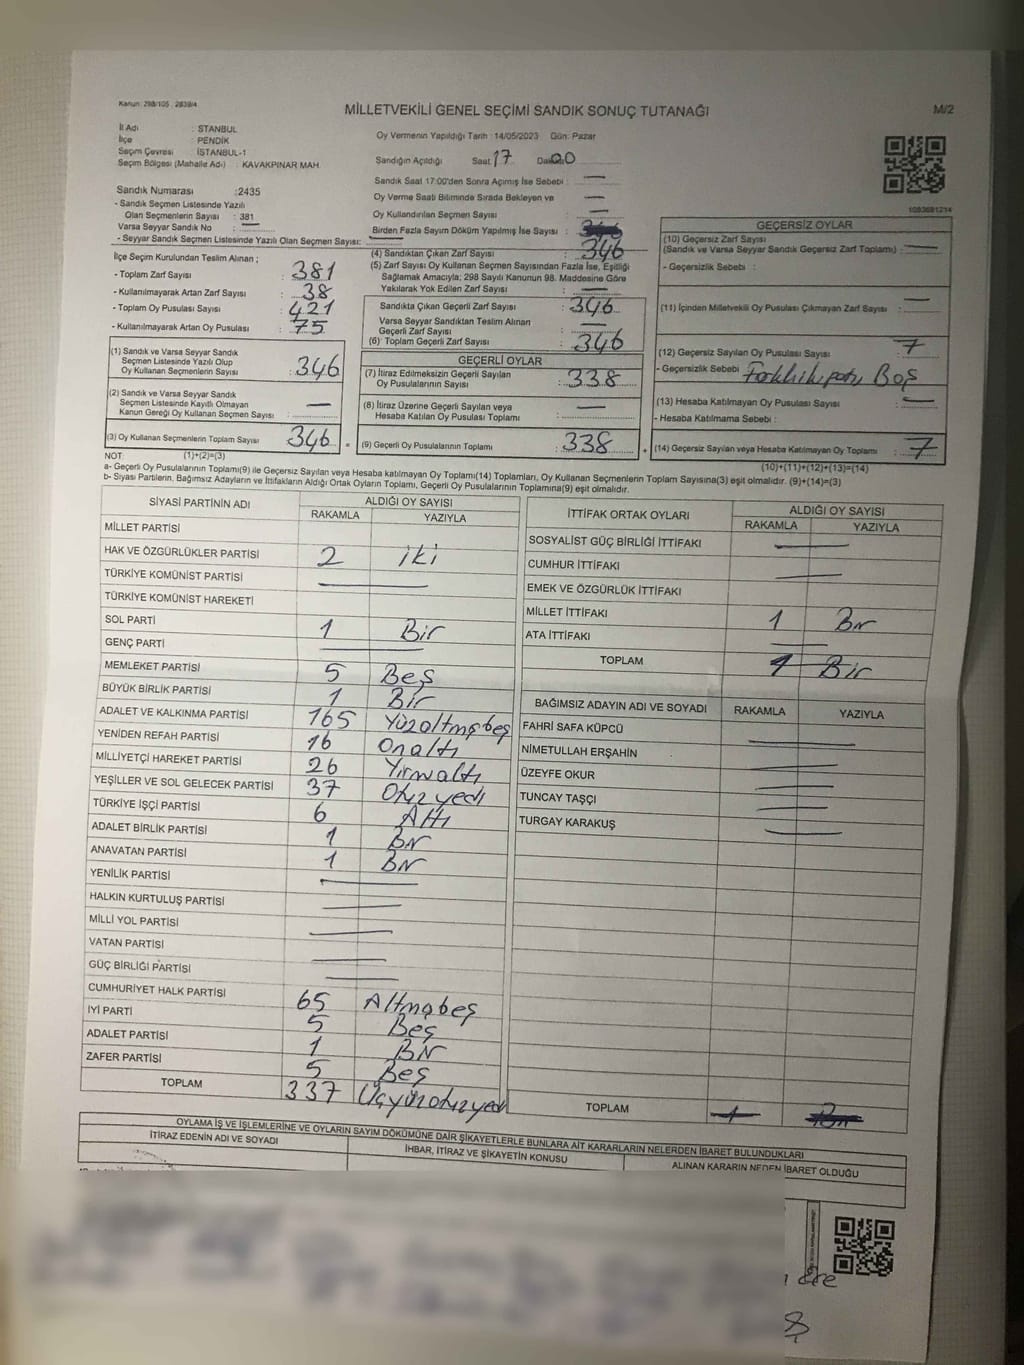 Kanun: 298/105 , 2839/4
MİLLETVEKİLİ GENEL SEÇİMİ SANDIK SONUÇ TUTANAĞI
M/2
İl Adı : STANBUL
İlçe : PENDİK
Seçim Çevresi : İSTANBUL-1
Seçim Bölgesi (Mahalle Adı) : KAVAKPINAR MAH
Oy Vermenin Yapıldığı Tarih : 14/05/2023 Gün: Pazar
Sandığın Açıldığı Saat 17 00
Sandık Saat 17:00'den Sonra Açımış İse Sebebi : —
Oy Verme Saati Bitiminde Sırada Bekleyen ve
Oy Kullandırılan Seçmen Sayısı —
Birden Fazla Sayım Döküm Yapılmış İse Sayısı :
1083681214
Sandık Numarası :2435
- Sandık Seçmen Listesinde Yazılı
Olan Seçmenlerin Sayısı : 381
Varsa Seyyar Sandık No : —
- Seyyar Sandık Seçmen Listesinde Yazılı Olan Seçmen Sayısı: —
İlçe Seçim Kurulundan Teslim Alınan ;
- Toplam Zarf Sayısı : 381
- Kullanılmayarak Artan Zarf Sayısı : 38
- Toplam Oy Pusulası Sayısı : 421
- Kullanılmayarak Artan Oy Pusulası : 75
(1) Sandık ve Varsa Seyyar Sandık
Seçmen Listesinde Yazılı Olup
Oy Kullanan Seçmenlerin Sayısı : 346
(2) Sandık ve Varsa Seyyar Sandık
Seçmen Listesinde Kayıtlı Olmayan
Kanun Gereği Oy Kullanan Seçmen Sayısı : —
(3) Oy Kullanan Seçmenlerin Toplam Sayısı 346
NOT: (1)+(2)=(3)
(4) Sandıktan Çıkan Zarf Sayısı : 346
(5) Zarf Sayısı Oy Kullanan Seçmen Sayısından Fazla İse, Eşitliği
Sağlamak Amacıyla; 298 Sayılı Kanunun 98. Maddesine Göre
Yakılarak Yok Edilen Zarf Sayısı : —
Sandıkta Çıkan Geçerli Zarf Sayısı : 346
Varsa Seyyar Sandıktan Teslim Alınan
Geçerli Zarf Sayısı : —
(6) Toplam Geçerli Zarf Sayısı : 346
GEÇERLİ OYLAR
(7) İtiraz Edilmeksizin Geçerli Sayılan
Oy Pusulalarının Sayısı : 338
(8) İtiraz Üzerine Geçerli Sayılan veya
Hesaba Katılan Oy Pusulası Toplamı : —
(9) Geçerli Oy Pusulalarının Toplamı : 338
GEÇERSİZ OYLAR
(10) Geçersiz Zarf Sayısı
(Sandık ve Varsa Seyyar Sandık Geçersiz Zarf Toplamı) : —
- Geçersizlik Sebebi :
(11) İçinden Milletvekili Oy Pusulası Çıkmayan Zarf Sayısı : —
(12) Geçersiz Sayılan Oy Pusulası Sayısı : 7
- Geçersizlik Sebebi Boş
(13) Hesaba Katılmayan Oy Pusulası Sayısı : —
- Hesaba Katılmama Sebebi :
(14) Geçersiz Sayılan veya Hesaba Katılmayan Oy Toplamı : 7
(10)+(11)+(12)+(13)=(14)
a- Geçerli Oy Pusulalarının Toplamı(9) ile Geçersiz Sayılan veya Hesaba katılmayan Oy Toplamı(14) Toplamları, Oy Kullanan Seçmenlerin Toplam Sayısına(3) eşit olmalıdır. (9)+(14)=(3)
b- Siyasi Partilerin, Bağımsız Adayların ve İttifakların Aldığı Ortak Oyların Toplamı, Geçerli Oy Pusulalarının Toplamına(9) eşit olmalıdır.
SİYASİ PARTİNİN ADI ALDIĞI OY SAYISI
RAKAMLA YAZIYLA
MİLLET PARTİSİ
HAK VE ÖZGÜRLÜKLER PARTİSİ 2 iki
TÜRKİYE KOMÜNİST PARTİSİ —
TÜRKİYE KOMÜNİST HAREKETİ
SOL PARTİ 1 Bir
GENÇ PARTİ —
MEMLEKET PARTİSİ 5 Beş
BÜYÜK BİRLİK PARTİSİ 1 Bir
ADALET VE KALKINMA PARTİSİ 165 Yüzaltmışbeş
YENİDEN REFAH PARTİSİ 16 Onaltı
MİLLİYETÇİ HAREKET PARTİSİ 26 Yirmialtı
YEŞİLLER VE SOL GELECEK PARTİSİ 37 Otuzyedi
TÜRKİYE İŞÇİ PARTİSİ 6 Altı
ADALET BİRLİK PARTİSİ 1 Bir
ANAVATAN PARTİSİ 1 Bir
YENİLİK PARTİSİ —
HALKIN KURTULUŞ PARTİSİ —
MİLLİ YOL PARTİSİ —
VATAN PARTİSİ —
GÜÇ BİRLİĞİ PARTİSİ —
CUMHURİYET HALK PARTİSİ 65 Altmışbeş
İYİ PARTİ 5 Beş
ADALET PARTİSİ 1 Bir
ZAFER PARTİSİ 5 Beş
TOPLAM 337 Üçyüzotuzyedi
İTTİFAK ORTAK OYLARI ALDIĞI OY SAYISI
RAKAMLA YAZIYLA
SOSYALİST GÜÇ BİRLİĞİ İTTİFAKI —
CUMHUR İTTİFAKI —
EMEK VE ÖZGÜRLÜK İTTİFAKI
MİLLET İTTİFAKI 1 Bir
ATA İTTİFAKI —
TOPLAM 1 Bir
BAĞIMSIZ ADAYIN ADI VE SOYADI RAKAMLA YAZIYLA
FAHRİ SAFA KÜPCÜ —
NİMETULLAH ERŞAHİN —
ÜZEYFE OKUR —
TUNCAY TAŞÇI —
TURGAY KARAKUŞ —
TOPLAM
OYLAMA İŞ VE İŞLEMLERİNE VE OYLARIN SAYIM DÖKÜMÜNE DAİR ŞİKAYETLERLE BUNLARA AİT KARARLARIN NELERDEN İBARET BULUNDUKLARI
İTİRAZ EDENİN ADI VE SOYADI İHBAR, İTİRAZ VE ŞİKAYETİN KONUSU ALINAN KARARIN NEDEN İBARET OLDUĞU